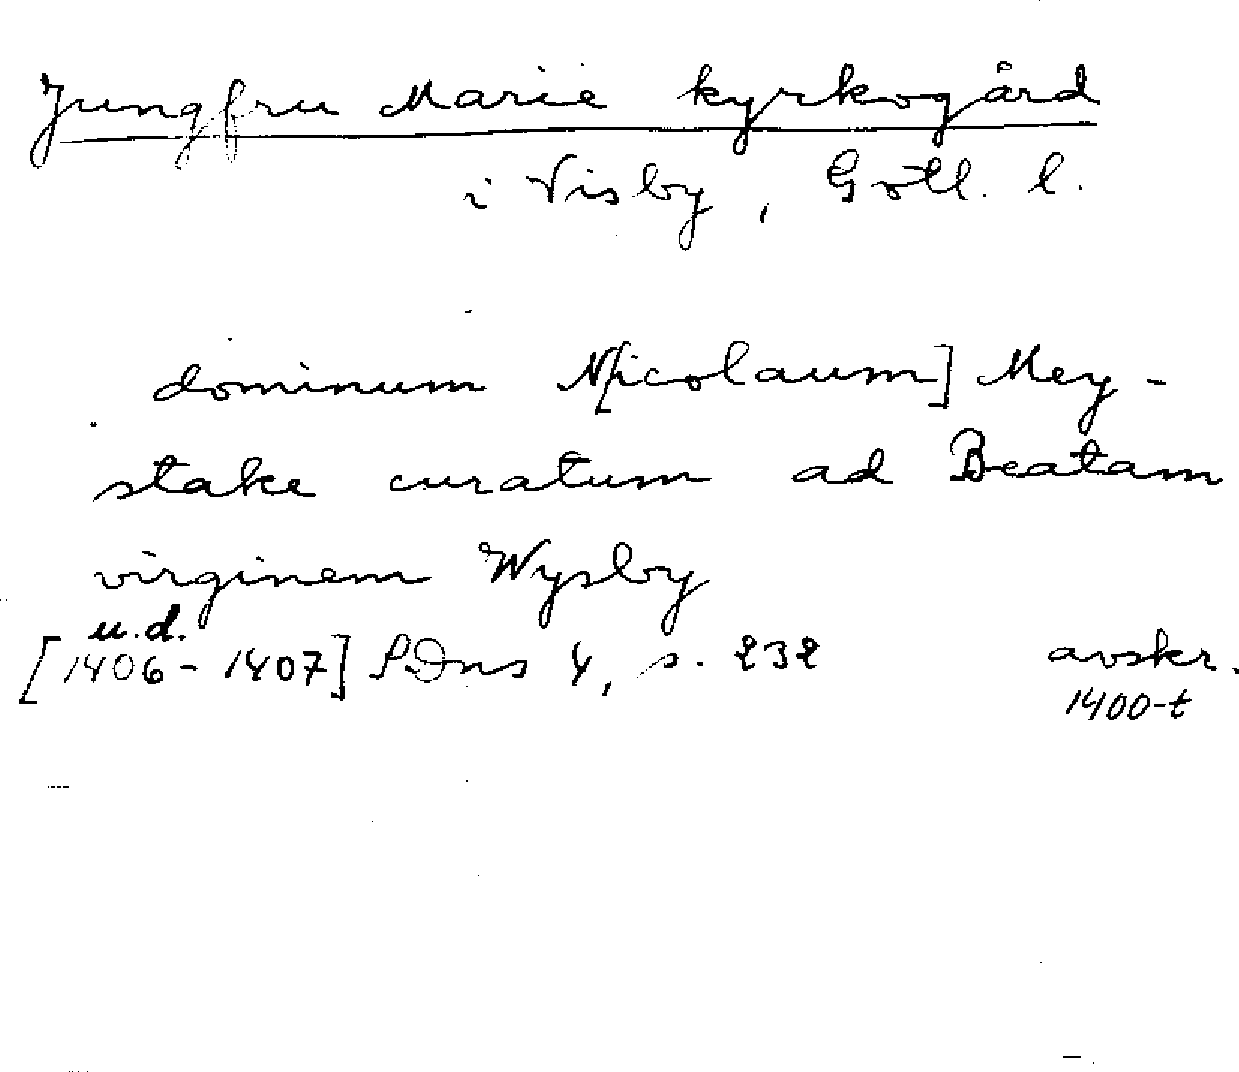 Jungfru Marie kyrkogård
i Visby, Gotl. l.
dominum N[icolaum] Mey-
stake curatum ad Beatam
virginem Wysby
u.d.
[1406-1407] SDns 4, s. 232 avskr.
1400-t